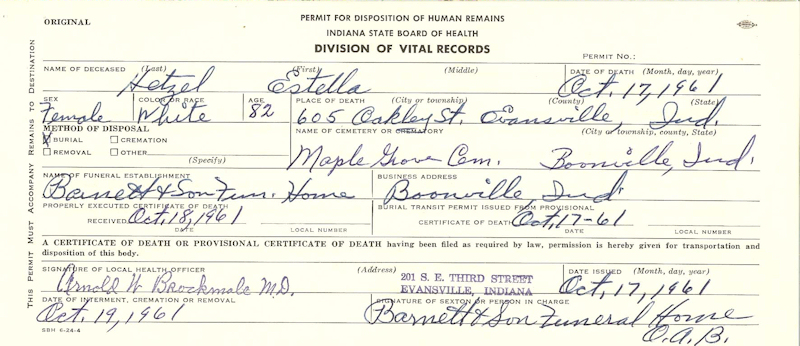 ORIGINAL
PERMIT FOR DISPOSITION OF HUMAN REMAINS
INDIANA STATE BOARD OF HEALTH
DIVISION OF VITAL RECORDS
PERMIT NO.:
THIS PERMIT MUST ACCOMPANY REMAINS TO DESTINATION
NAME OF DECEASED (Last) (First) (Middle) DATE OF DEATH (Month, day, year)
Hetzel Estella Oct. 17, 1961
SEX COLOR OR RACE AGE PLACE OF DEATH (City or township) (County) (State)
Female White 82 605 Oakley St. Evansville, Ind.
METHOD OF DISPOSAL NAME OF CEMETERY OR CREMATORY (City or township, county, State)
X BURIAL CREMATION
REMOVAL OTHER
(Specify)
Maple Grove Cem. Boonville, Ind.
NAME OF FUNERAL ESTABLISHMENT BUSINESS ADDRESS
Barnett & Son Fun. Home Boonville, Ind.
PROPERLY EXECUTED CERTIFICATE OF DEATH BURIAL TRANSIT PERMIT ISSUED FROM PROVISIONAL
RECEIVED Oct. 18, 1961 CERTIFICATE OF DEATH Oct, 17-61
DATE LOCAL NUMBER DATE LOCAL NUMBER
A CERTIFICATE OF DEATH OR PROVISIONAL CERTIFICATE OF DEATH having been filed as required by law, permission is hereby given for transportation and
disposition of this body.
SIGNATURE OF LOCAL HEALTH OFFICER (Address) DATE ISSUED (Month, day, year)
Arnold W Brockmole M.D. 201 S. E. THIRD STREET
EVANSVILLE, INDIANA Oct, 17, 1961
DATE OF INTERMENT, CREMATION OR REMOVAL SIGNATURE OF SEXTON OR PERSON IN CHARGE
Oct. 19, 1961 Barnett & Son Funeral Home
O.A.B.
SBH 6-24-4